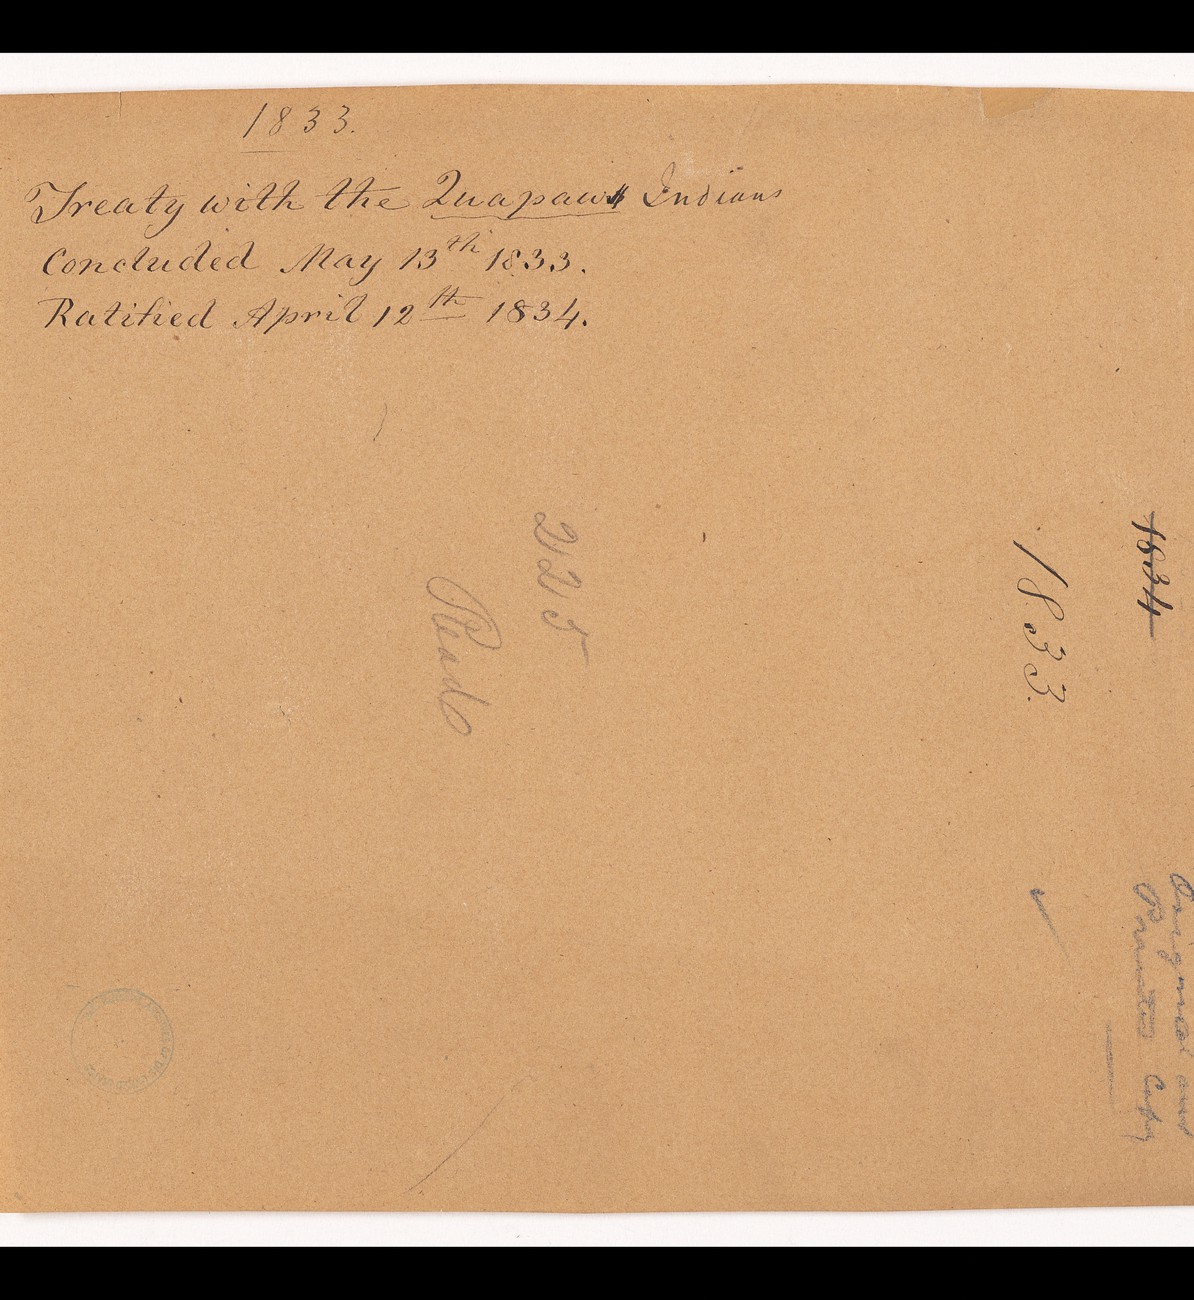 1833.
Treaty with the Quapaw Indians
Concluded May 13th 1833.
Ratified April 12th 1834.
225
Read
1833.
1834
Original and
Printed Copy